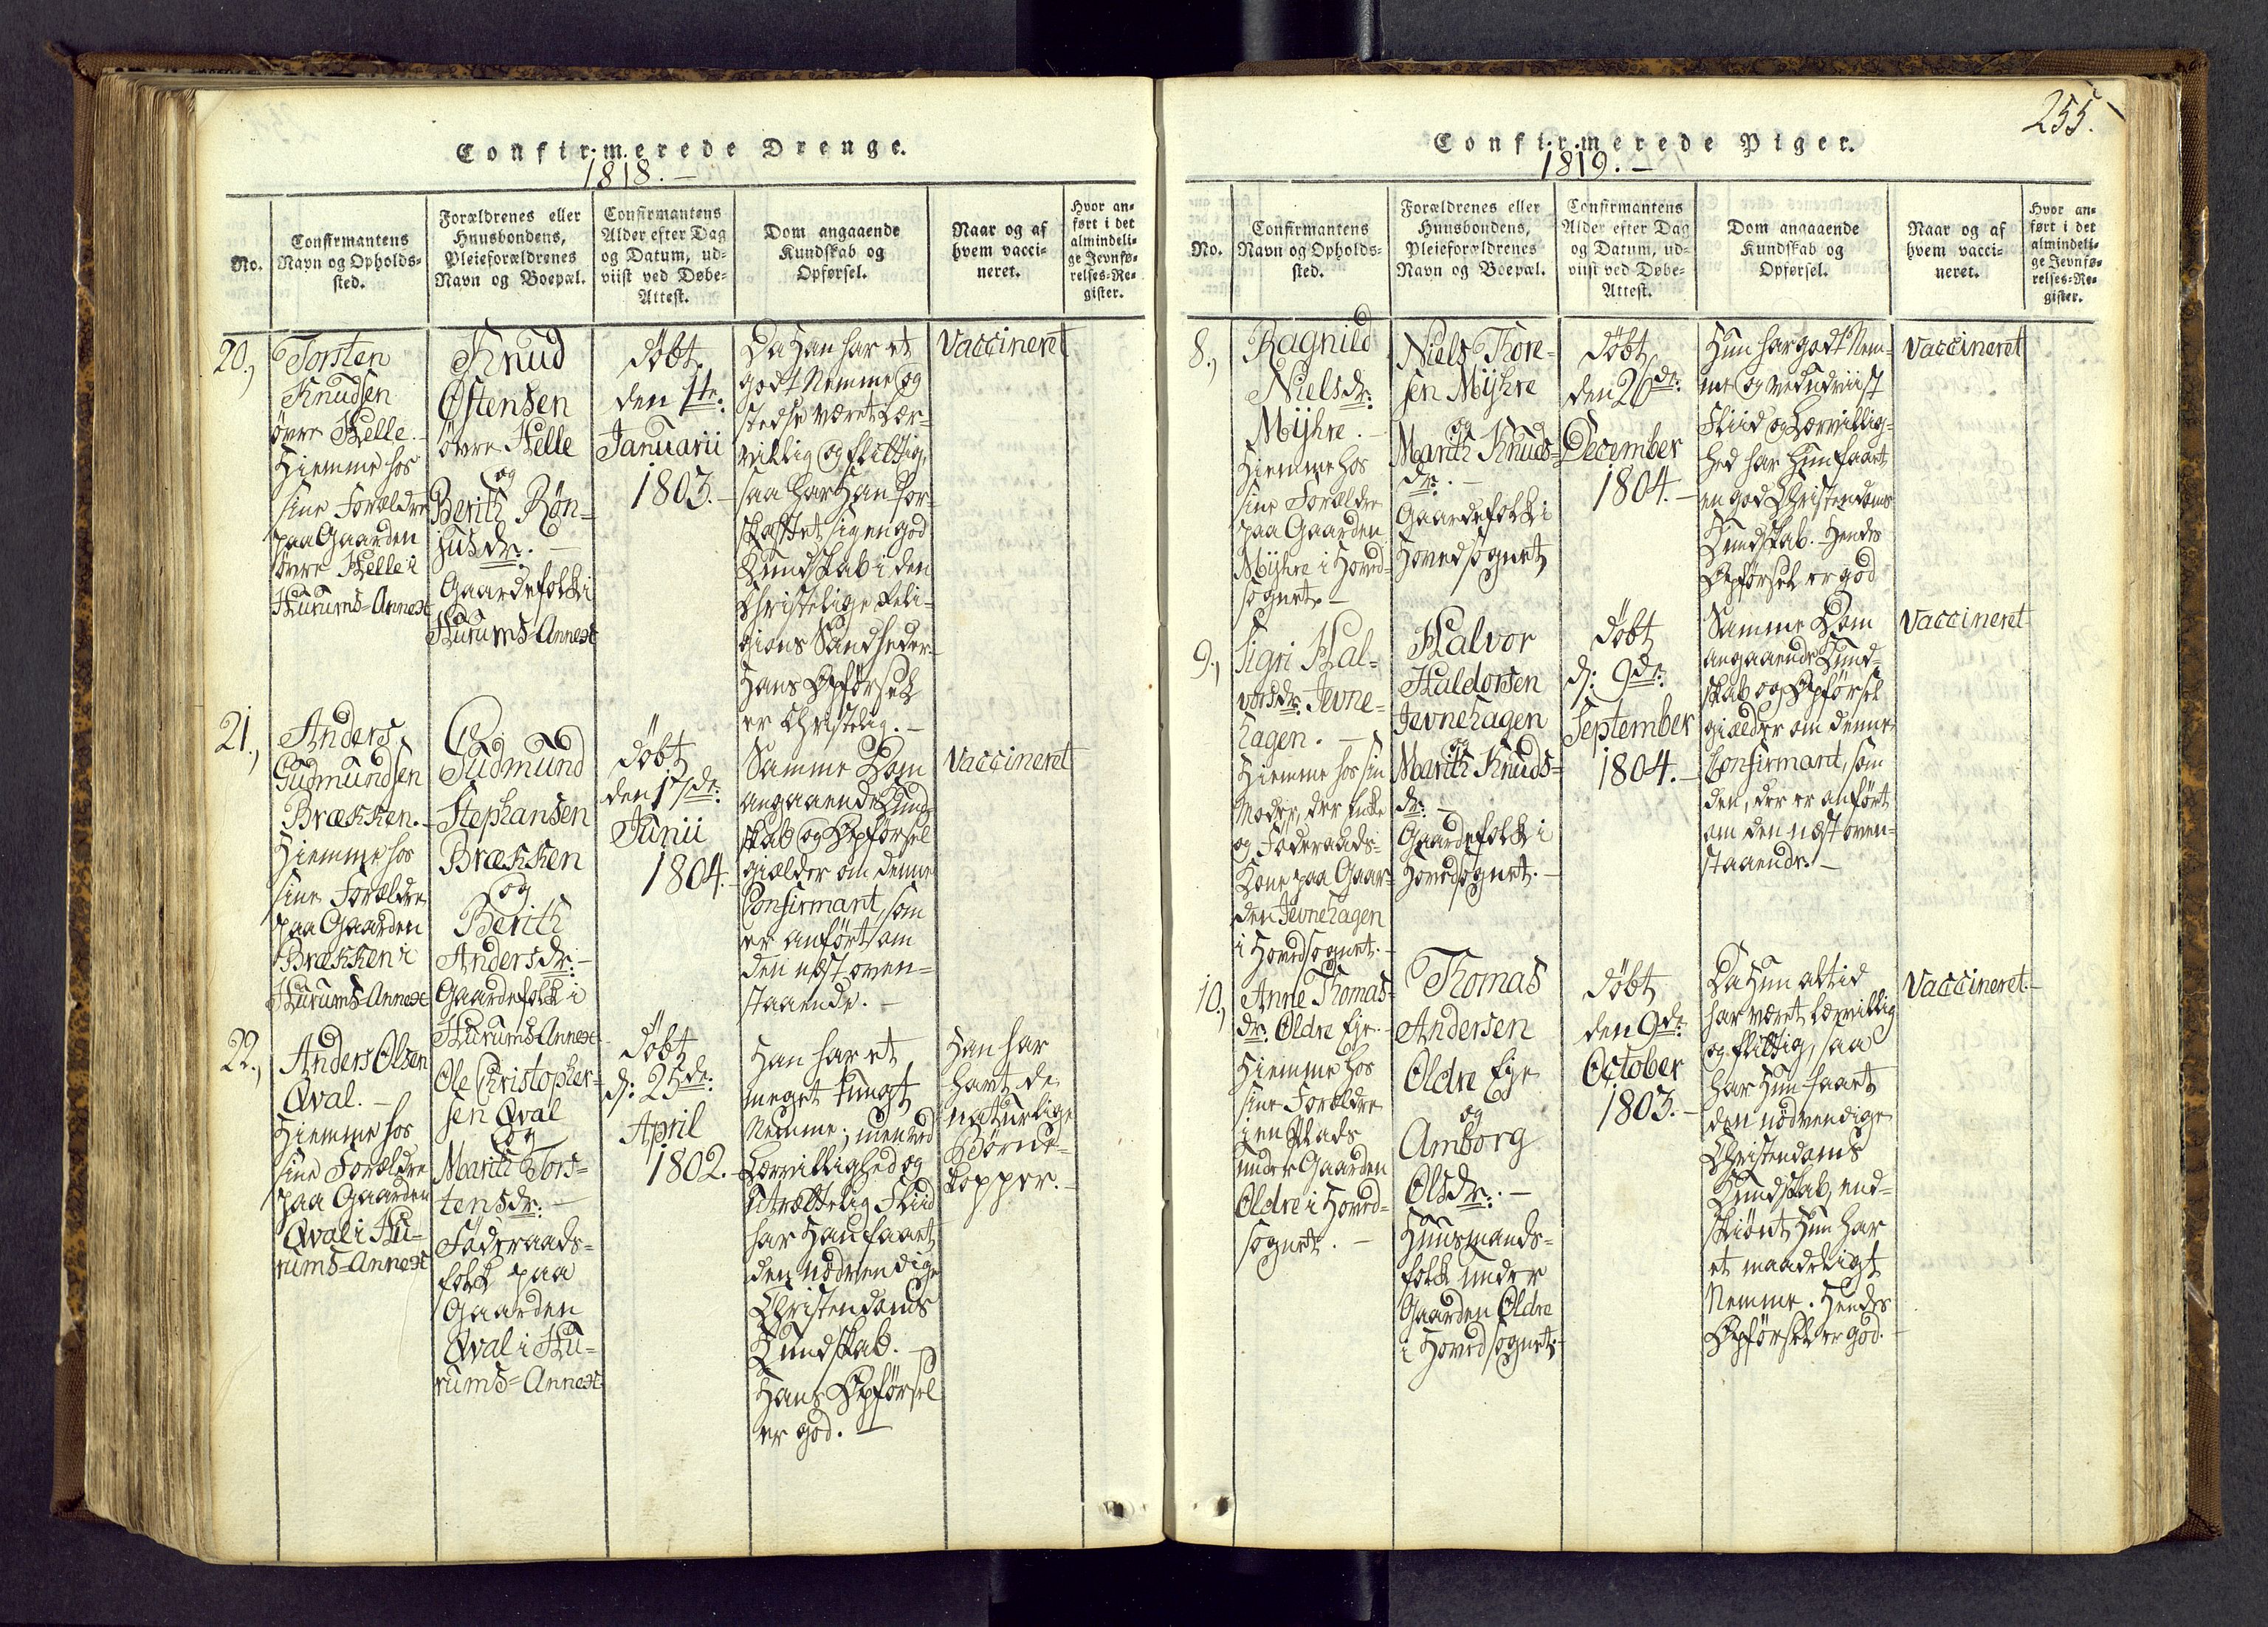 Confirmerede Drenge.
1818. –
No.
Confirmantens
Navn og Opholds-
sted.
Forældrenes eller
Huusbondens,
Pleieforældrenes
Navn og Boepæl.
Confirmantens
Alder efter Dag
og Datum, ud-
viist ved Døbe-
Attest.
Dom angaaende
Kundskab og
Opførsel.
Naar og af
hvem vacci-
neret.
Hvor an-
ført i det
almindeli-
ge Jevnfø-
relses-Re-
gister.
20.,
Torsten
Knudsen
övre Helle. –
Hiemme hos
sine Forældre
paa Gaarden
övre Helle i
Hurums=Annex
Knud
Østensen
övre Helle
og
Berith Røn-
jusdr. –
Gaardefolk i
Hurums=Annex
döbt
den 1te:
Januarii
1803. –
Da Han har et
godt Nemme og
stedse været Lær-
villig og flittig,
saa har Han for-
skaffet sig en god
Kundskab i den
Christelige Reli-
gions Sandheder.
Hans Opførsel
er Christelig. –
Vaccineret
21.,
Anders
Gudmundsen
Brækken. –
Hiemme hos
sine Forældre
paa Gaarden
Brækken i
Hurums=Annex
Gudmund
Stephansen
Brækken
og
Berith
Andersdr: –
Gaardefolk i
Hurums=Annex
döbt
den 17de:
Junii
1804. –
Samme Dom
angaaende Kund-
skab og Opførsel
giælder om denne
Confirmant, som
er anført om
den næst oven=
staaende. –
Vaccineret
22.,
Anders Olsen
Qval. –
Hiemme hos
sine Forældre
paa Gaarden
Qval i Hu-
rums=Annex
Ole Christopher=
sen Qval
og
Marith Tors=
tensdr: –
Föderaads=
folk paa
Gaarden
Qval i Hu=
rums=Annex
döbt
d: 25de:
April
1802. –
Han har et
meget tungt
Nemme; men ved
Lærvillighed og
utrættelig Fliid
har Han faaet
den nödvendige
Christendoms
Kundskab. –
Hans Opførsel
er god. –
Han har
havt de
naturlige
Börne=
kopper. –
255.
Confirmerede Piger.
1819. –
No.
Confirmantens
Navn og Opholds-
sted.
Forældrenes eller
Huusbondens,
Pleieforældrenes
Navn og Boepæl.
Confirmantens
Alder efter Dag
og Datum, ud-
viist ved Døbe-
Attest.
Dom angaaende
Kundskab og
Opførsel.
Naar og af
hvem vacci-
neret.
Hvor an-
ført i det
almindeli-
ge Jevnfø-
relses-Re-
gister.
8.,
Ragnild
Nielsdr:
Mÿhre. –
Hiemme hos
sine Forældre
paa Gaarden
Mÿhre i Hoved-
sognet. –
Niels Thore-
sen Mÿhre
og
Marith Knuds=
dr: –
Gaardefolk i
Hovedsognet
döbt
den 26de:
December
1804. –
Hun har godt Nem-
me og ved udviist
Fliid og Lærvillig=
hed har Hun faaet
en god Christendoms
Kundskab. Hendes
Opførsel er god
Vaccineret
9.,
Sigri Hal=
vorsdr: Jevne=
hagen. –
Hiemme hos sin
Moder, der Enke
og Föderaads=
Kone paa Gaar-
den Jevnehagen
i Hovedsognet. –
Halvor
Haldorsen
Jevnehagen
og
Marith Knuds=
dr: –
Gaardefolk i
Hovedsognet. –
döbt
d: 9de:
September
1804. –
Samme Dom
angaaende Kund=
skab og Opførsel
giælder om denne
Confirmant, som
den, der er anført
om den næst oven-
staaende. –
Vaccineret
10.,
Anne Thomas=
dr: Oldre Eje. –
Hiemme hos
sine Forældre
i en Plads
under Gaarden
Oldre i Hoved=
sognet. –
Thomas
Andersen
Oldre Eje
og
Amborg
Olsdr: –
Huusmands=
folk under
Gaarden Oldre
i Hovedsognet. –
döbt
den 9de:
October
1803. –
Da Hun altid
har været Lærvillig
og flittig, saa
har Hun faaet
den nödvendige
Christendoms
Kundskab, end=
skiönt Hun har
et maadeligt
Nemme. Hendes
Opførsel er god. –
Vaccineret. –